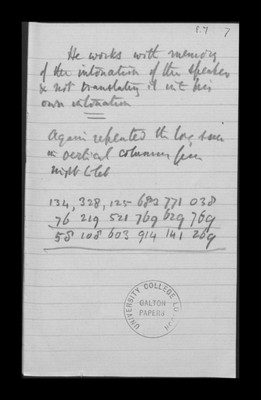 E.7 7
He works with memory
of the intonation of the speaker
& not translating it into his
own intonation
Again repeated the long sum
in vertical columns from
right to left
134, 328, 125 682 771 038
76 219 521 769 629 769
58 108 603 914 141 269
UNIVERSITY COLLEGE
GALTON
PAPERS